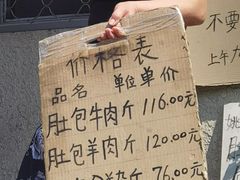 价格表
品名 单位 单价
肚包牛肉 斤 116.00元
肚包羊肉 斤 120.00元
斤 76.00元
不要
上午
姚